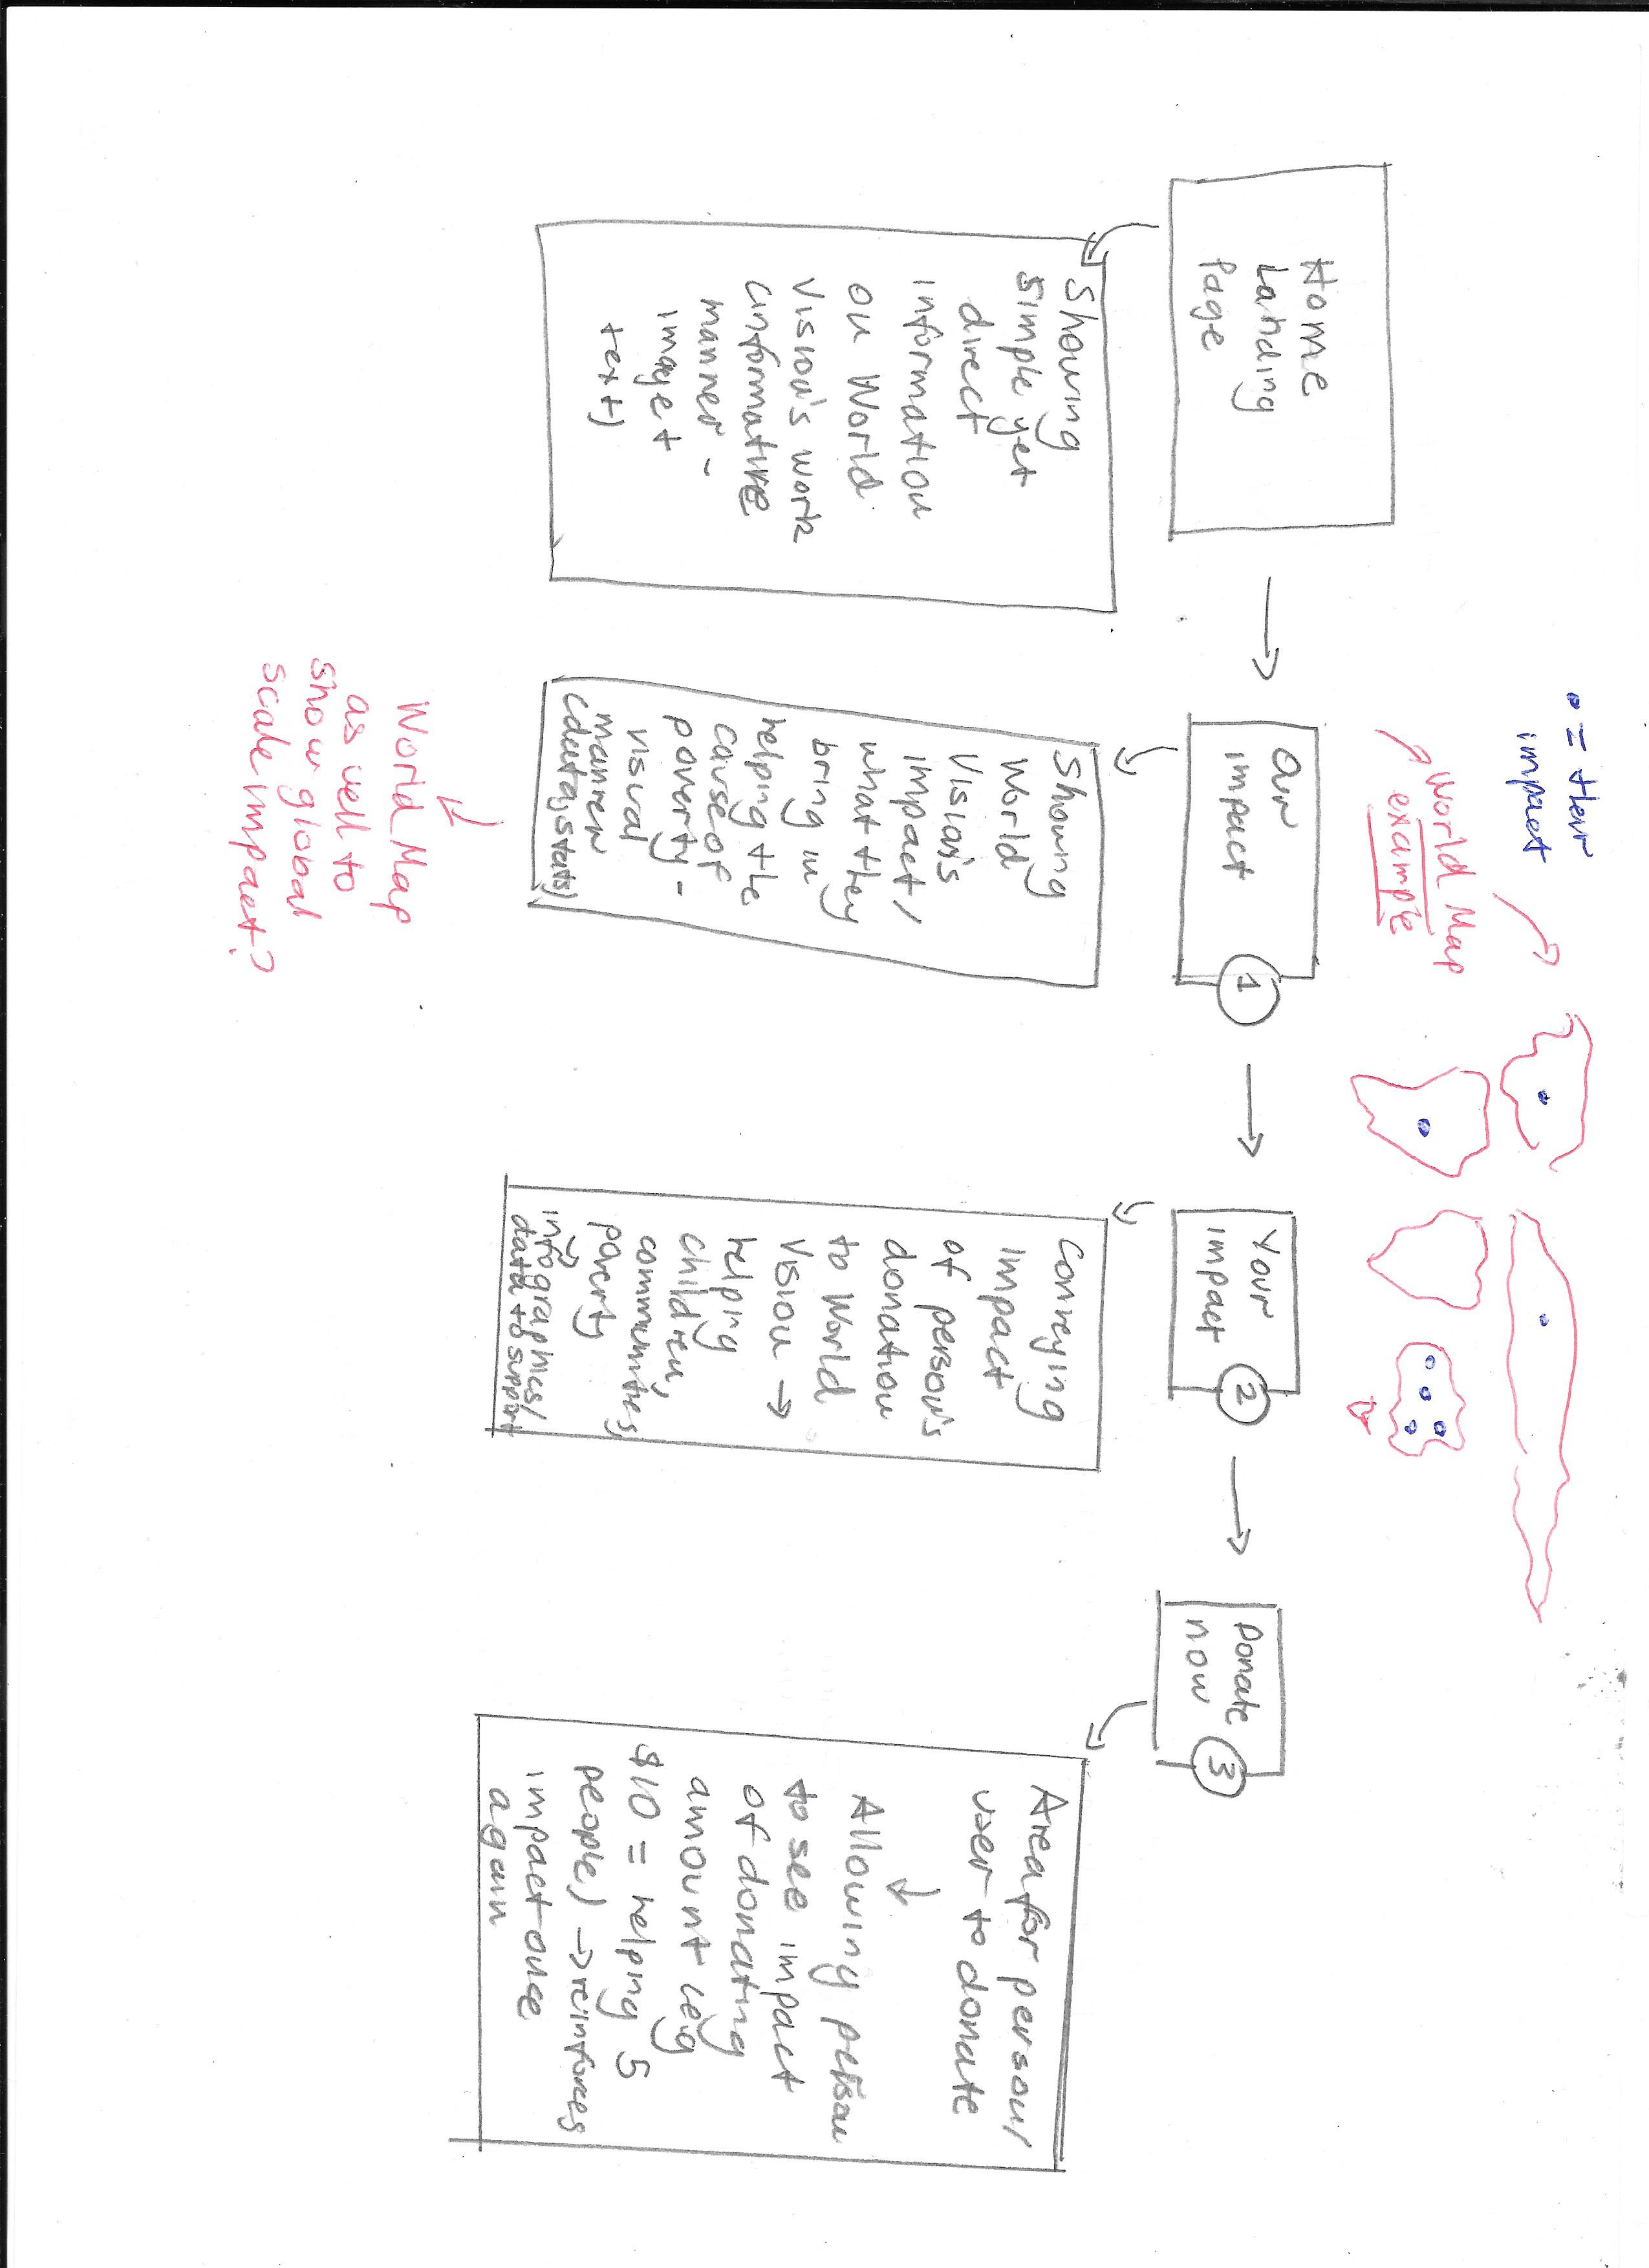 • = their
impact
World Map
example
Home
Landing
Page
Our
impact
1
Your
impact
2
Donate
now
3
Showing
simple yet
direct
information
on World
Vision's work
(informative
manner -
image +
text)
Showing
World
Vision's
impact/
what they
bring in
helping the
cause of
poverty -
visual
manner
(data, stats)
World Map
as well to
show global
scale impact?
Conveying
impact
of person's
donation
to World
Vision →
helping
children,
communities,
poverty
→
infographics/
data to support
Area for person/
user to donate
↓
Allowing person
to see impact
of donating
amount (e.g
$10 = helping 5
people) → reinforces
impact once
again